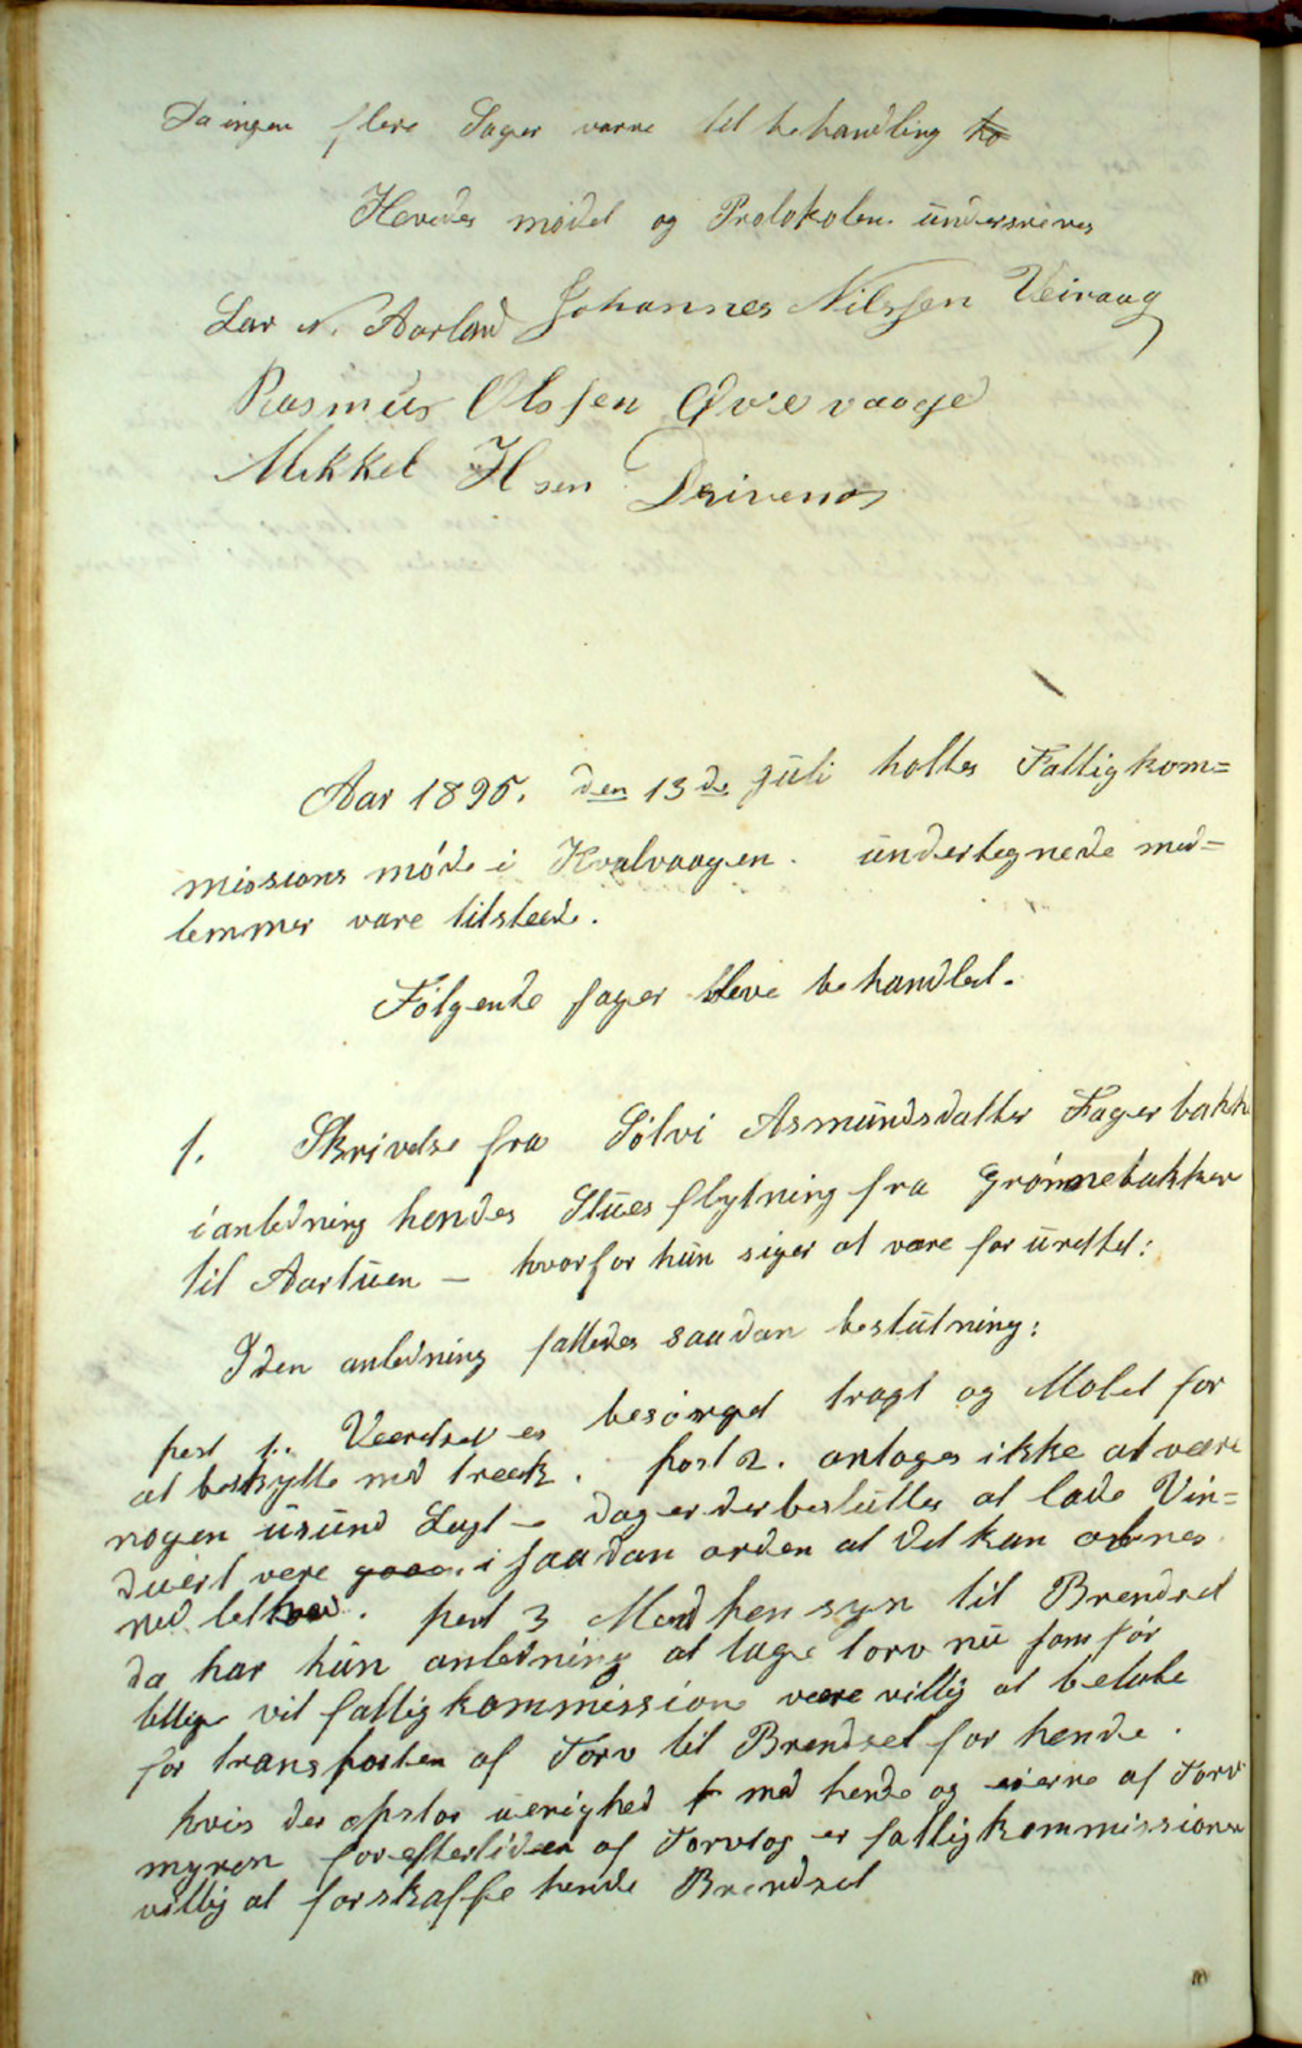 Da ingen flere Sager varne til behandling ho
Hevedes mødet og Protokolen underskrives
Lar N. Aarland Johannes Nilssen Veivaag
Rasmus Olssen Øvrevaage
Mikkel H sen Drivenes
Aar 1895. den 13de Juli holtes Fattigkom=
missions møde i Kvalvaagen. undertegnede med=
lemmer vare tilstede.
Følgende sager bleve behandlet.
1. Skrivelse fra Sølvi Asmundsdatter Fagerbakk
i anledning hendes Stues flytning fra Grønnebakken
til Aartuen – hvorfor hun siger at være forurettet:
I den anledning fattedes saadan beslutning:
post 1. Værelset es besørget tragt og Malet for
at beskytte mod træk. post 2. antages ikke at være
nogen usund Lugt – dog er der besluttes at lade Vin=
duerl være i saadan orden at det kan aabnes
med lethed. post 3 Med hensyn til Brendsel
da har hun anledning at tage torv nu som før
tillige vil fattigkommission være villig at betale
for transporten af Torv til Brendsel for hende.
hvis der opstor uenighed med hende og eierne af Torv
myren for eftertiden af Torvtag er fattigkommissionen
villig at forskaffe hende Brendsel